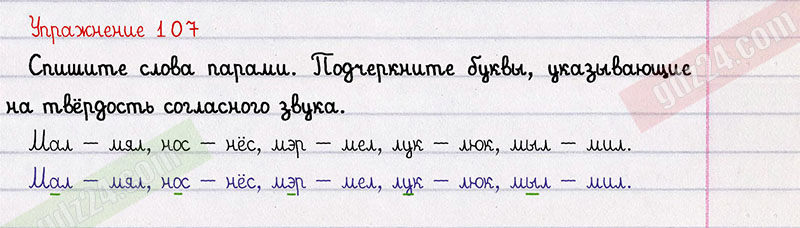 Упражнение 107
Спишите слова парами. Подчеркните буквы, указывающие
на твёрдость согласного звука.
Мал – мял, нос – нёс, мэр – мел, лук – люк, мыл – мил.
Мал – мял, нос – нёс, мэр – мел, лук – люк, мыл – мил.
gdz24.com
gdz24.com